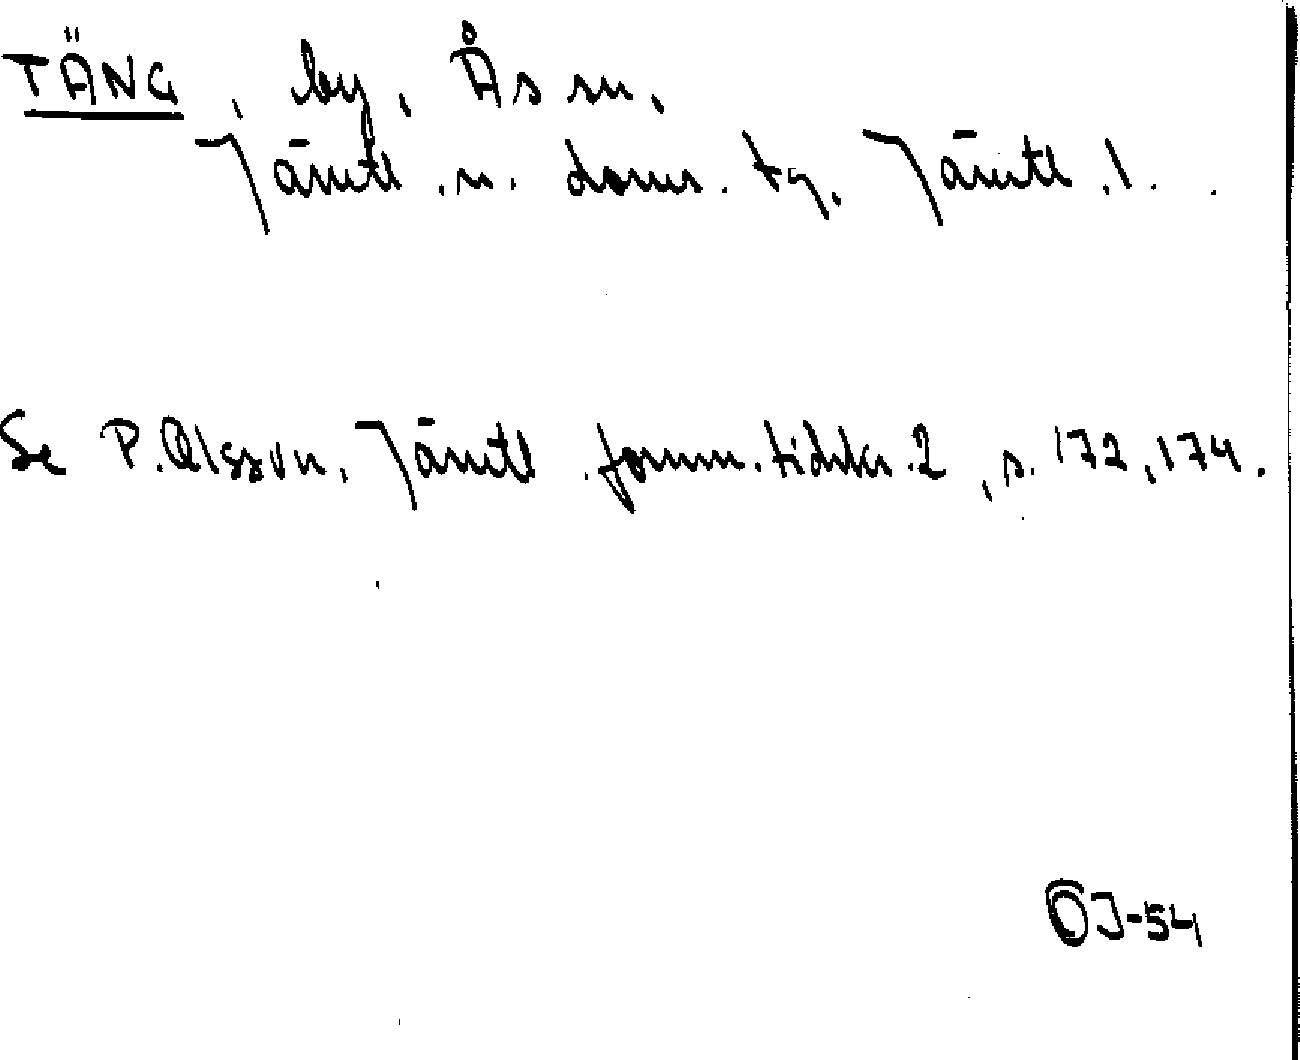 TÄNG, by, Ås sn,
Jämtl. n. doms. tg. Jämtl. l.
Se P. Olsson, Jämtl. fornm. tidskr. 2, s. 172, 174.
ÖJ-54